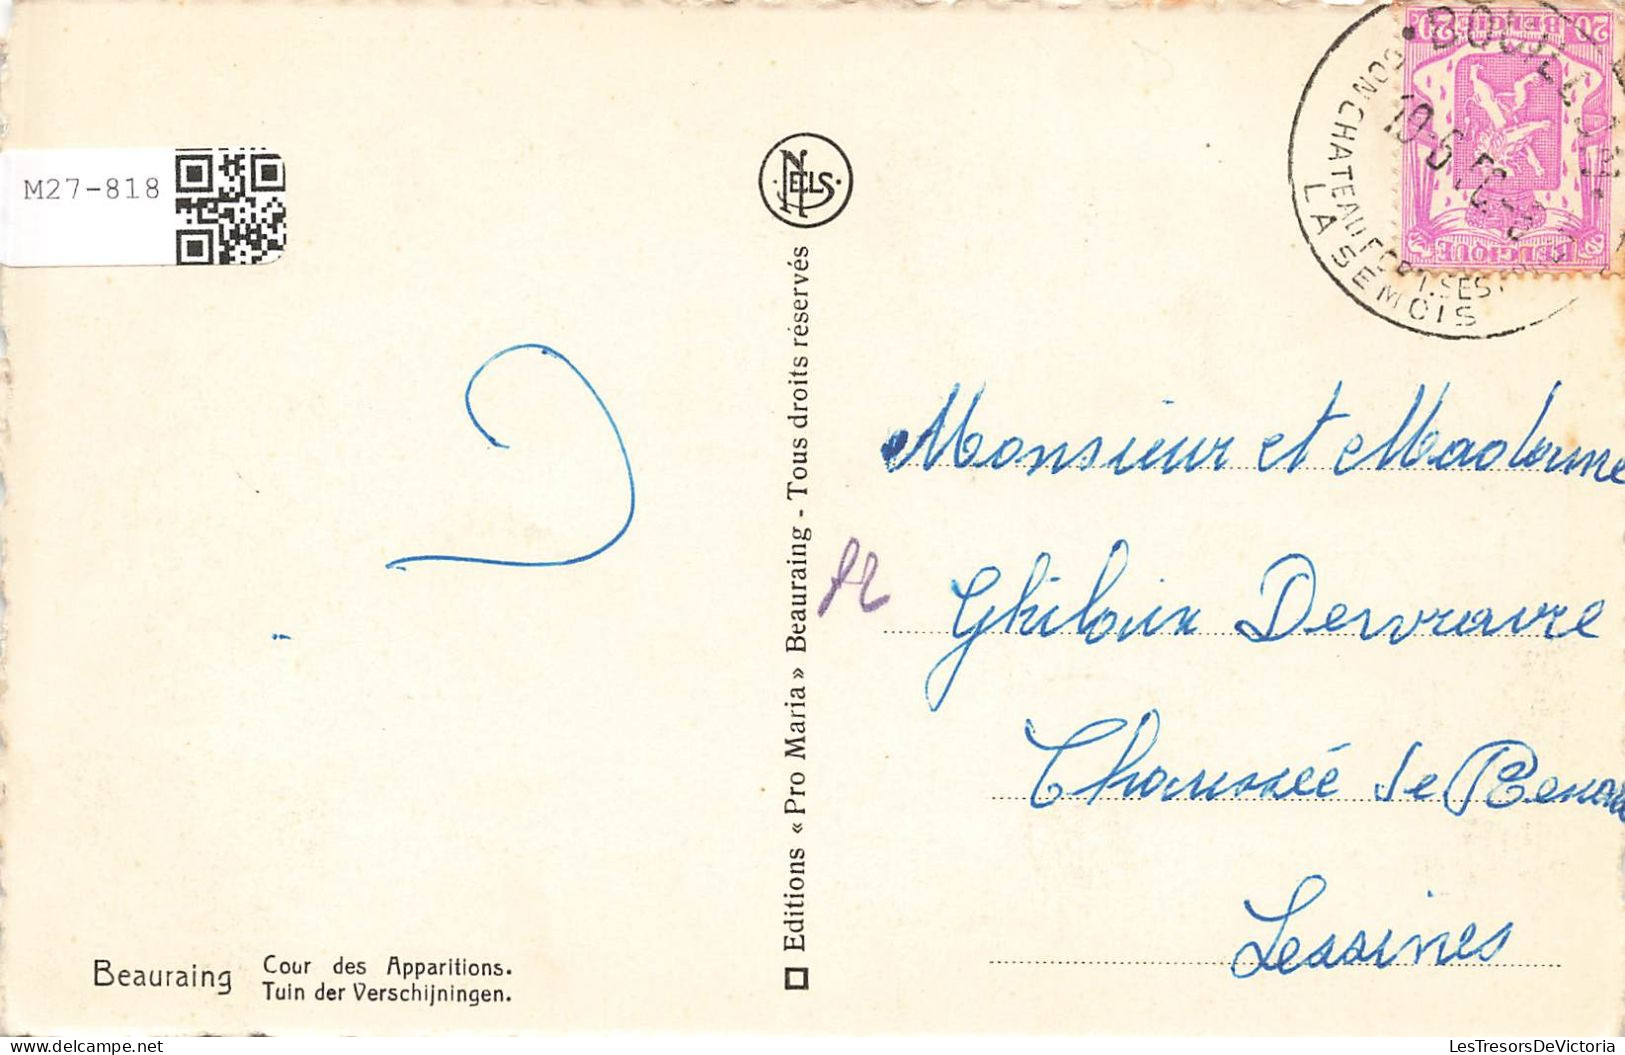 M27-818
NELS
BELGIQUE
BELGIE
20
20
BOUILLON
SON CHATEAU FORT. SES
LA SEMOIS
Editions « Pro Maria » Beauraing - Tous droits réservés
Monsieur et Madame
Ghilain
Chaussée de
Lessines
Beauraing
Cour des Apparitions.
Tuin der Verschijningen.
delcampe.net
LesTresorsDeVictoria